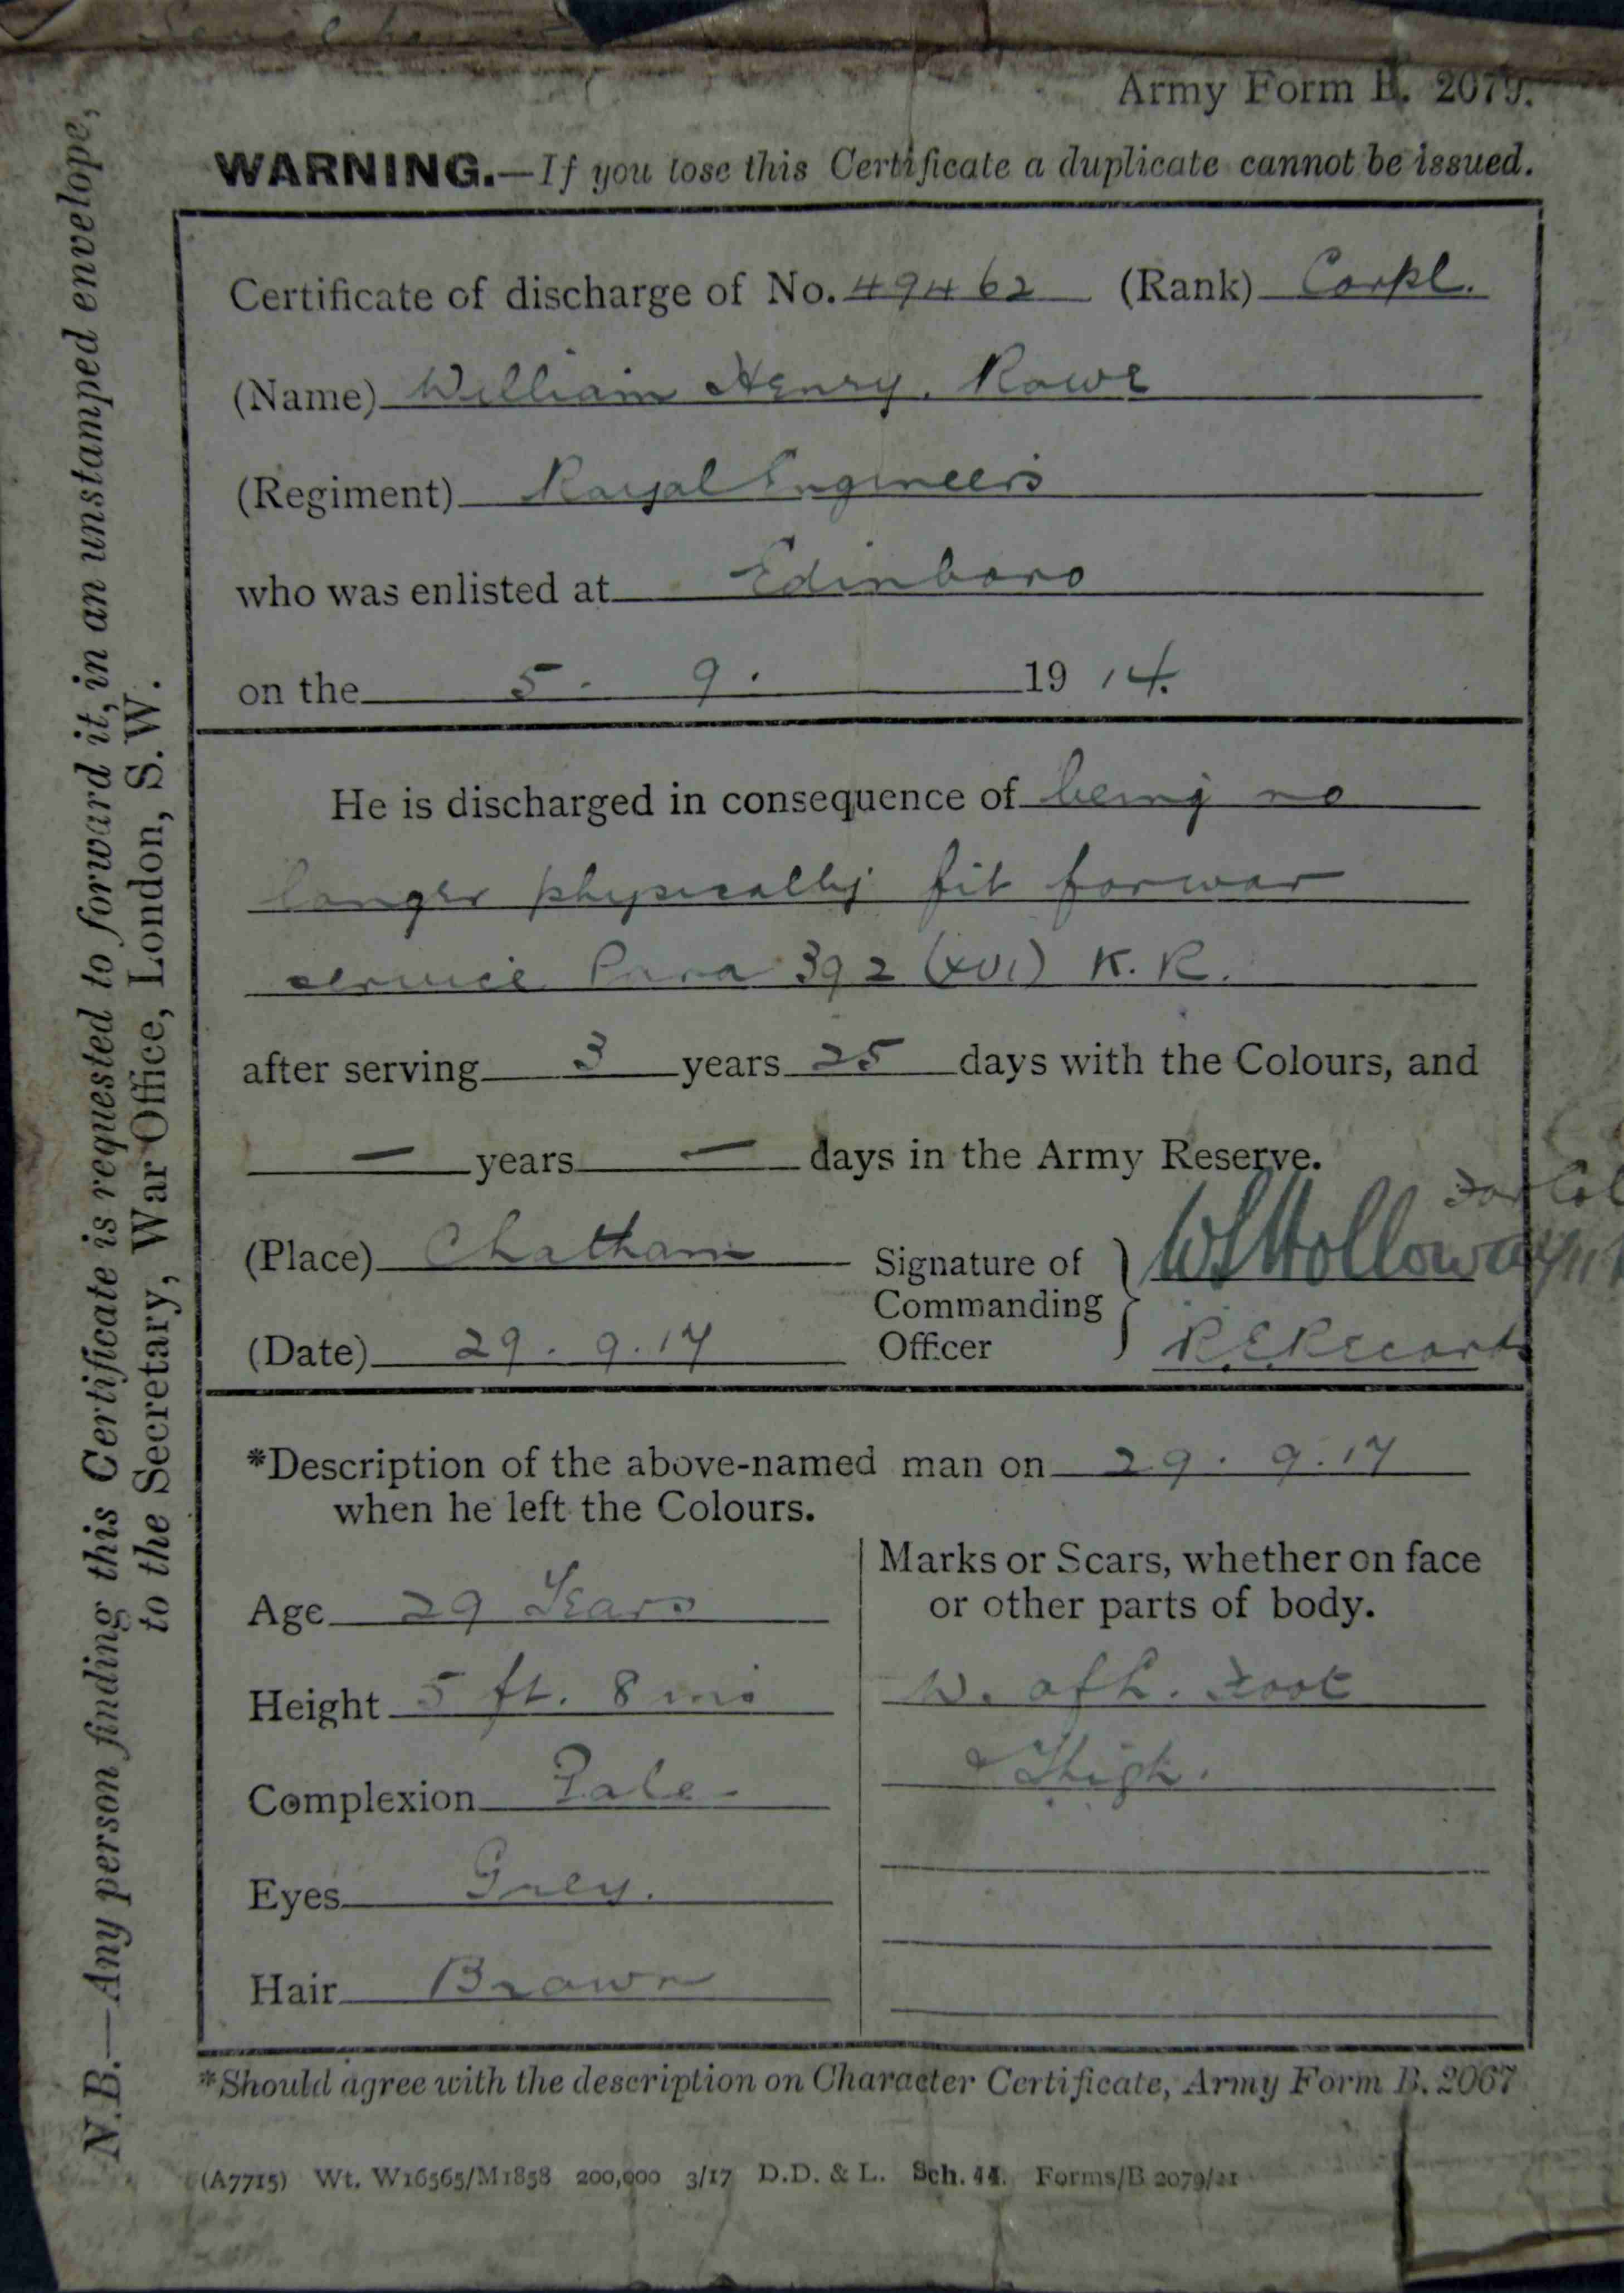 Army Form B. 2079.
WARNING.—If you lose this Certificate a duplicate cannot be issued.
Certificate of discharge of No. 49462 (Rank) Corpl.
(Name) William Henry. Rowe
(Regiment) Royal Engineers
who was enlisted at Edinboro
on the 5. 9. 1914.
He is discharged in consequence of being no
longer physically fit for war
service Para 392 (XVI) K.R.
after serving 3 years 25 days with the Colours, and
— years — days in the Army Reserve.
(Place) Chatham
Signature of Commanding Officer
For Col
W S Holloway
R.E. Records
(Date) 29. 9. 17
*Description of the above-named man on 29. 9. 17
when he left the Colours.
Age 29 Years
Height 5 ft. 8 ins
Complexion Pale
Eyes Grey.
Hair Brown
Marks or Scars, whether on face
or other parts of body.
W. of L. Foot
& Thigh.
*Should agree with the description on Character Certificate, Army Form B. 2067
(A7715) Wt. W16565/M1858 200,000 3/17 D.D. & L. Sch. 44. Forms/B 2079/21
N.B.—Any person finding this Certificate is requested to forward it, in an unstamped envelope,
to the Secretary, War Office, London, S.W.